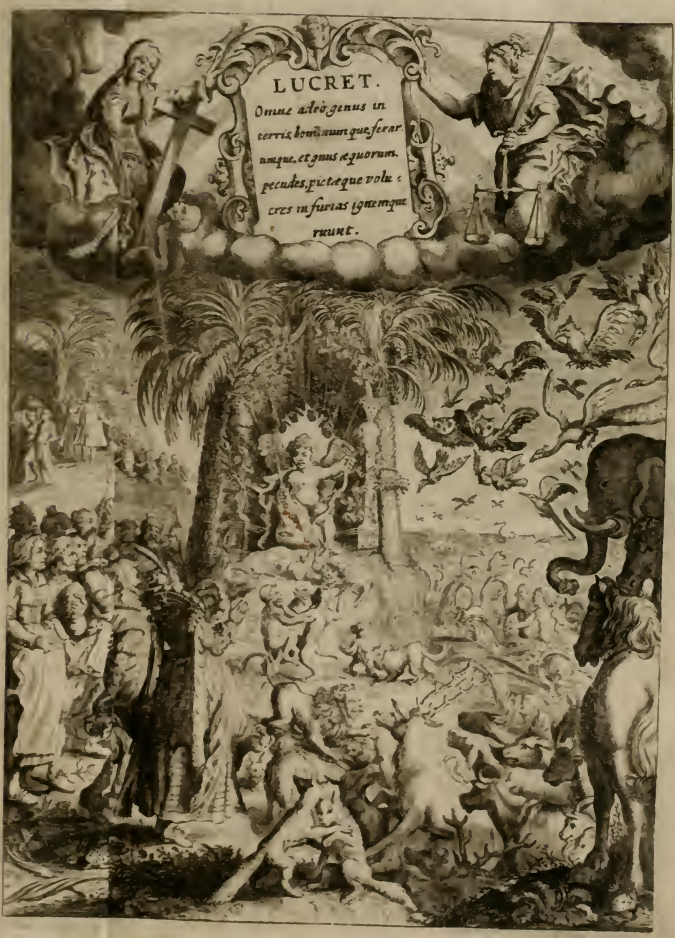 LUCRET.
Omne adeò genus in
terris, hominum que, ferar
umque, et genus æquorum.
pecudes, pictæque volu=
cres in furias ignemque
ruunt.